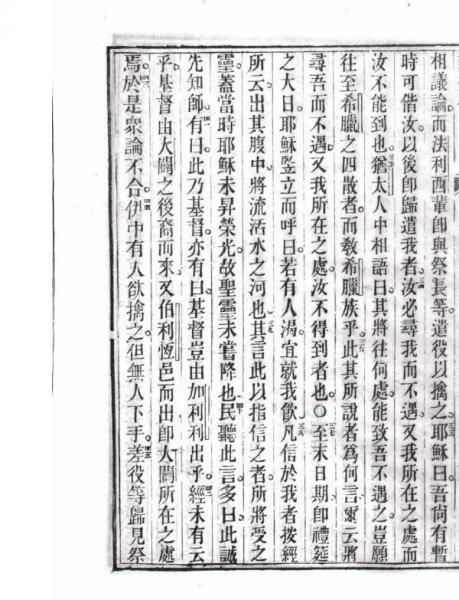 相議論而法利西輩卽與祭長等遣役以擒之耶穌曰吾尚有暫
時可偕汝以後卽歸遣我者汝必尋我而不遇又我所在之處而
汝不能到也猶太人中相語曰其將往何處能致吾不遇之豈願
往至希臘之四散者而敎希臘族乎此其所說者爲何言爾云將
尋吾而不遇又我所在之處汝不得到者也○至末日期卽禮筵
之大日耶穌竪立而呼曰若有人渴宜就我飮凡信於我者按經
所云出其腹中將流活水之河也其言此以指信之者所將受之
靈蓋當時耶穌未昇榮光故聖靈未嘗降也民聽此言多曰此誠
先知師有曰此乃基督亦有曰基督豈由加利利出乎經未有云
乎基督由大闢之後裔而來又伯利恆邑而出卽大闢所在之處
焉於是衆論不合伊中有人欲擒之但無人下手差役等歸見祭